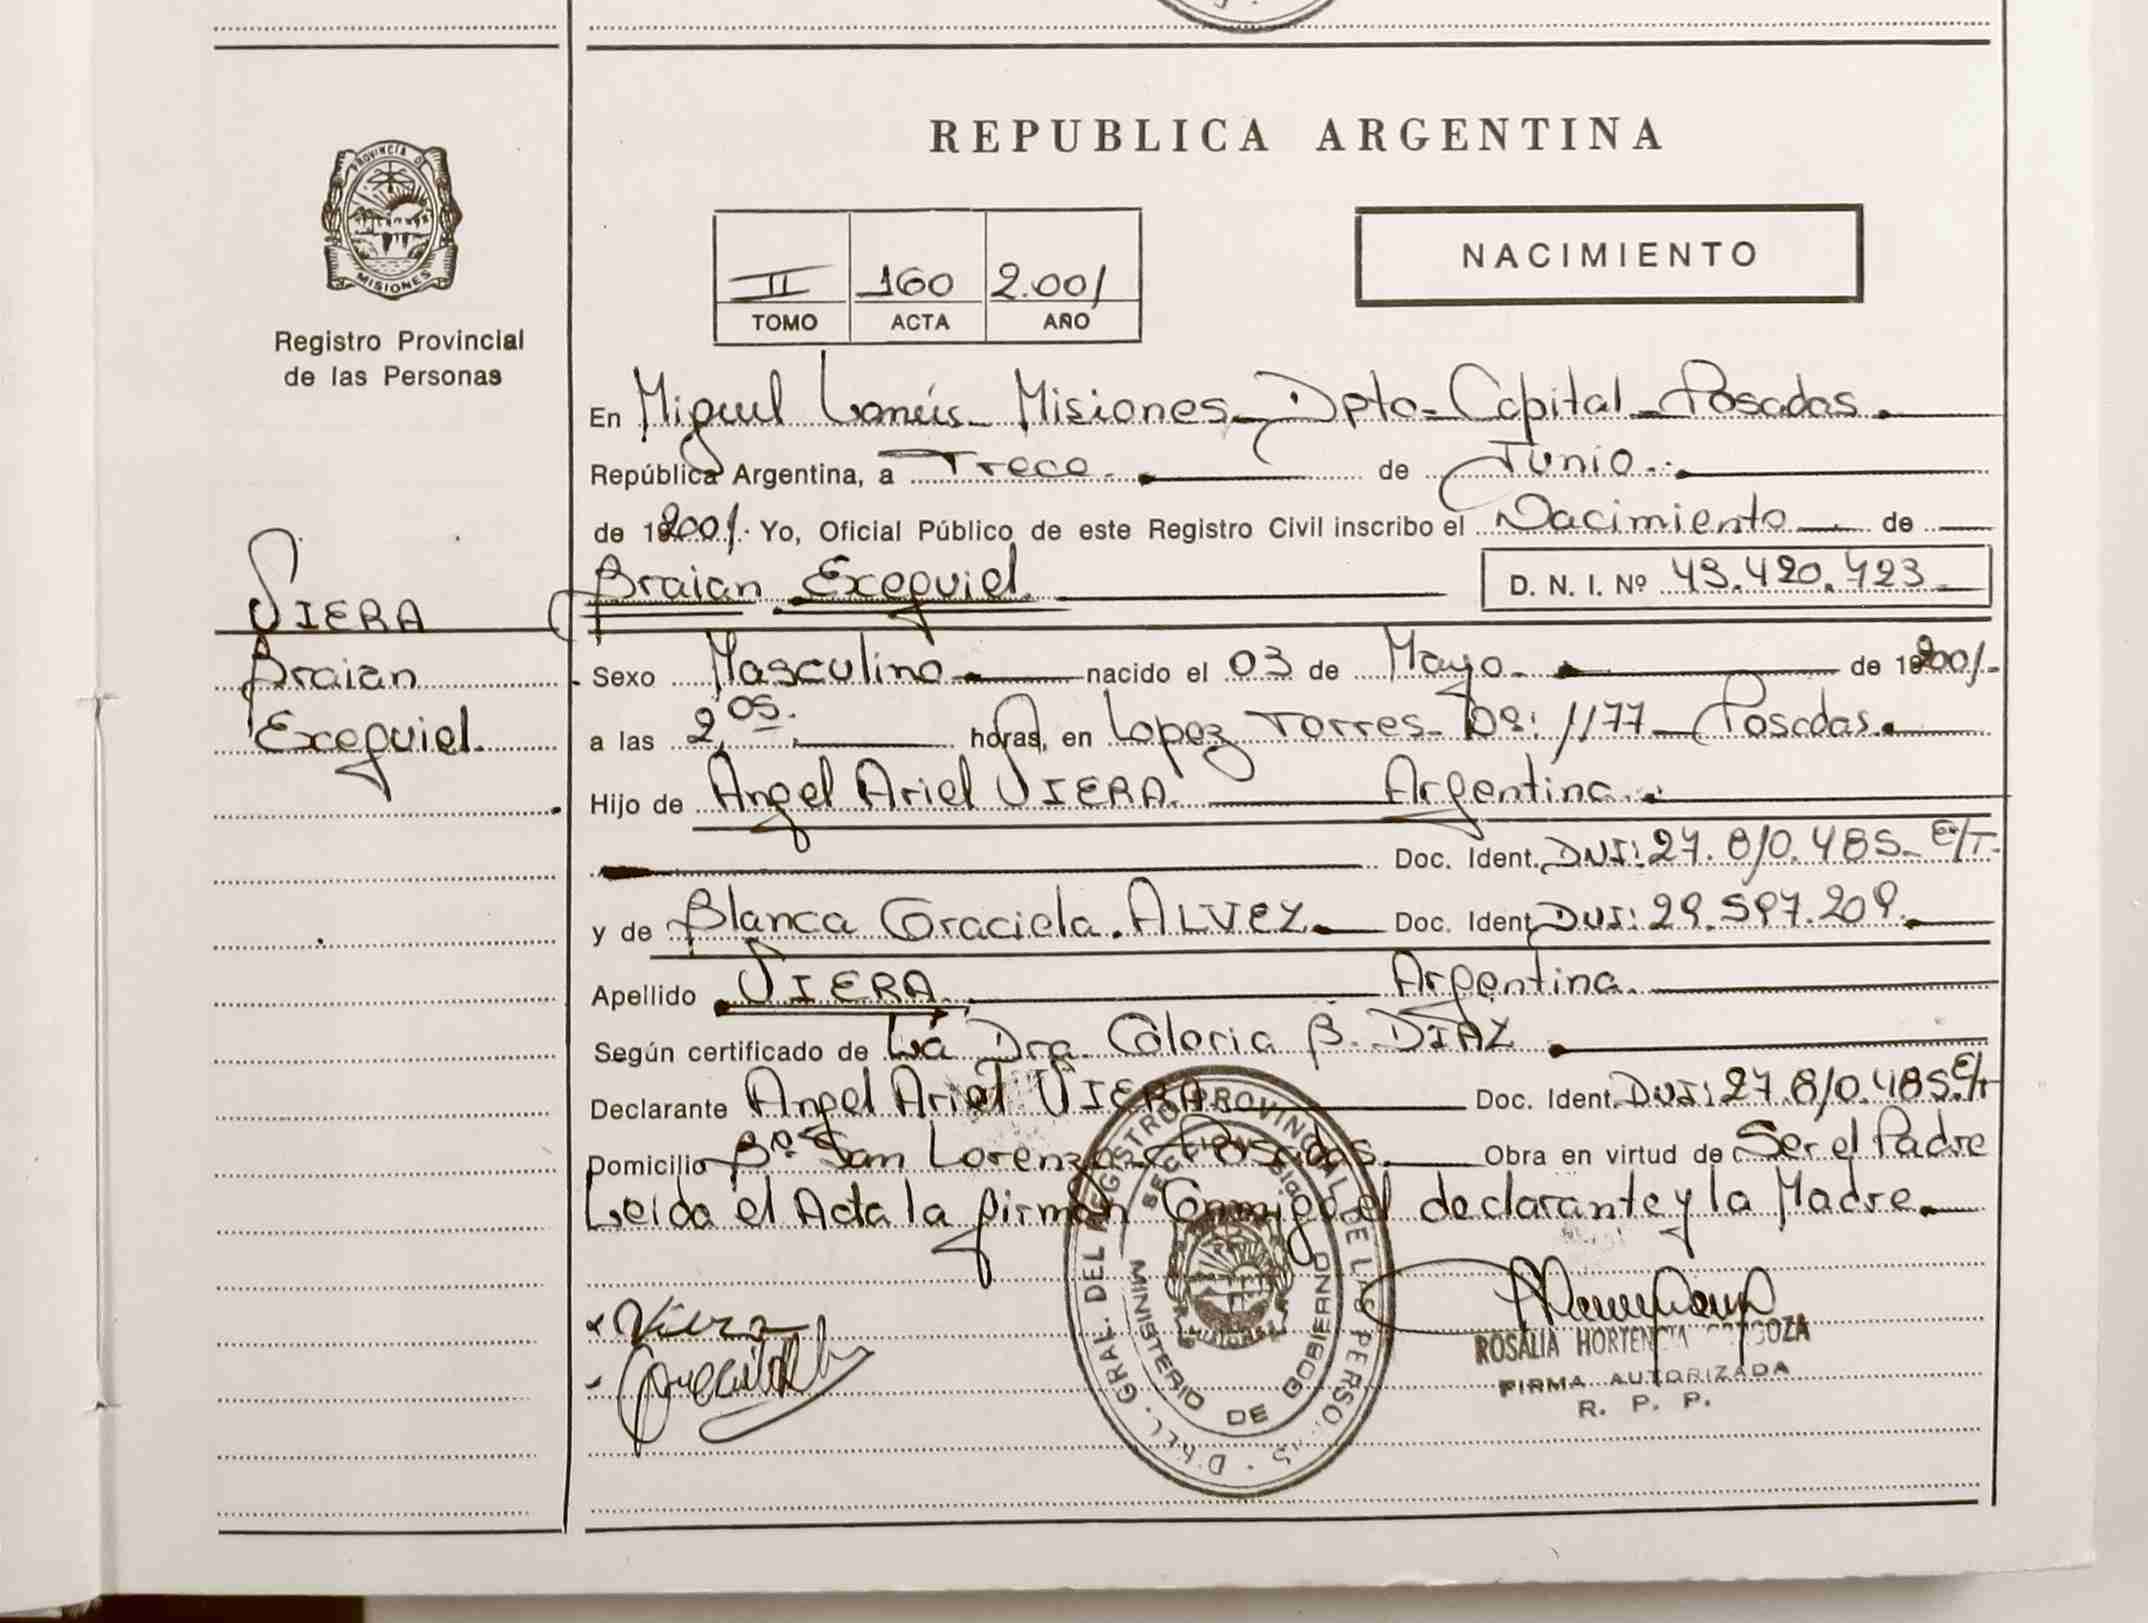 PROVINCIA D
MISIONES
Registro Provincial
de las Personas
VIERA
Braian
Exequiel.
REPUBLICA ARGENTINA
II 160 2.001
TOMO ACTA AÑO
NACIMIENTO
En Miguel Lanús - Misiones - Dpto - Capital - Posadas.
República Argentina, a Trece. de Junio.
de 2001. Yo, Oficial Público de este Registro Civil inscribo el Nacimiento de
Braian Exequiel. D. N. I. Nº 43.420.423
Sexo Masculino nacido el 03 de Mayo. de 2001.
a las 2,05. horas, en Lopez Torres - 1177 - Posadas.
Hijo de Angel Ariel VIERA. Argentina.
Doc. Ident. DNI: 27.810.485 - E/T.
y de Blanca Graciela. ALVEZ. Doc. Ident. DNI: 29.597.209.
Apellido VIERA. Argentina.
Según certificado de La Dra. Gloria B. DIAZ
Declarante Angel Ariel VIERA. Doc. Ident. DNI: 27.810.485. E/T
Domicilio Bº San Lorenzo - Posadas. Obra en virtud de Ser el Padre
Leida el Acta la firman Conmigo el declarante y la Madre.
DEL REGISTRO PROVINCIAL DE LAS PERSONAS
MINISTERIO DE GOBIERNO
MISIONES
Viera
ROSALIA HORTENCIA
FIRMA AUTORIZADA
R. P. P.